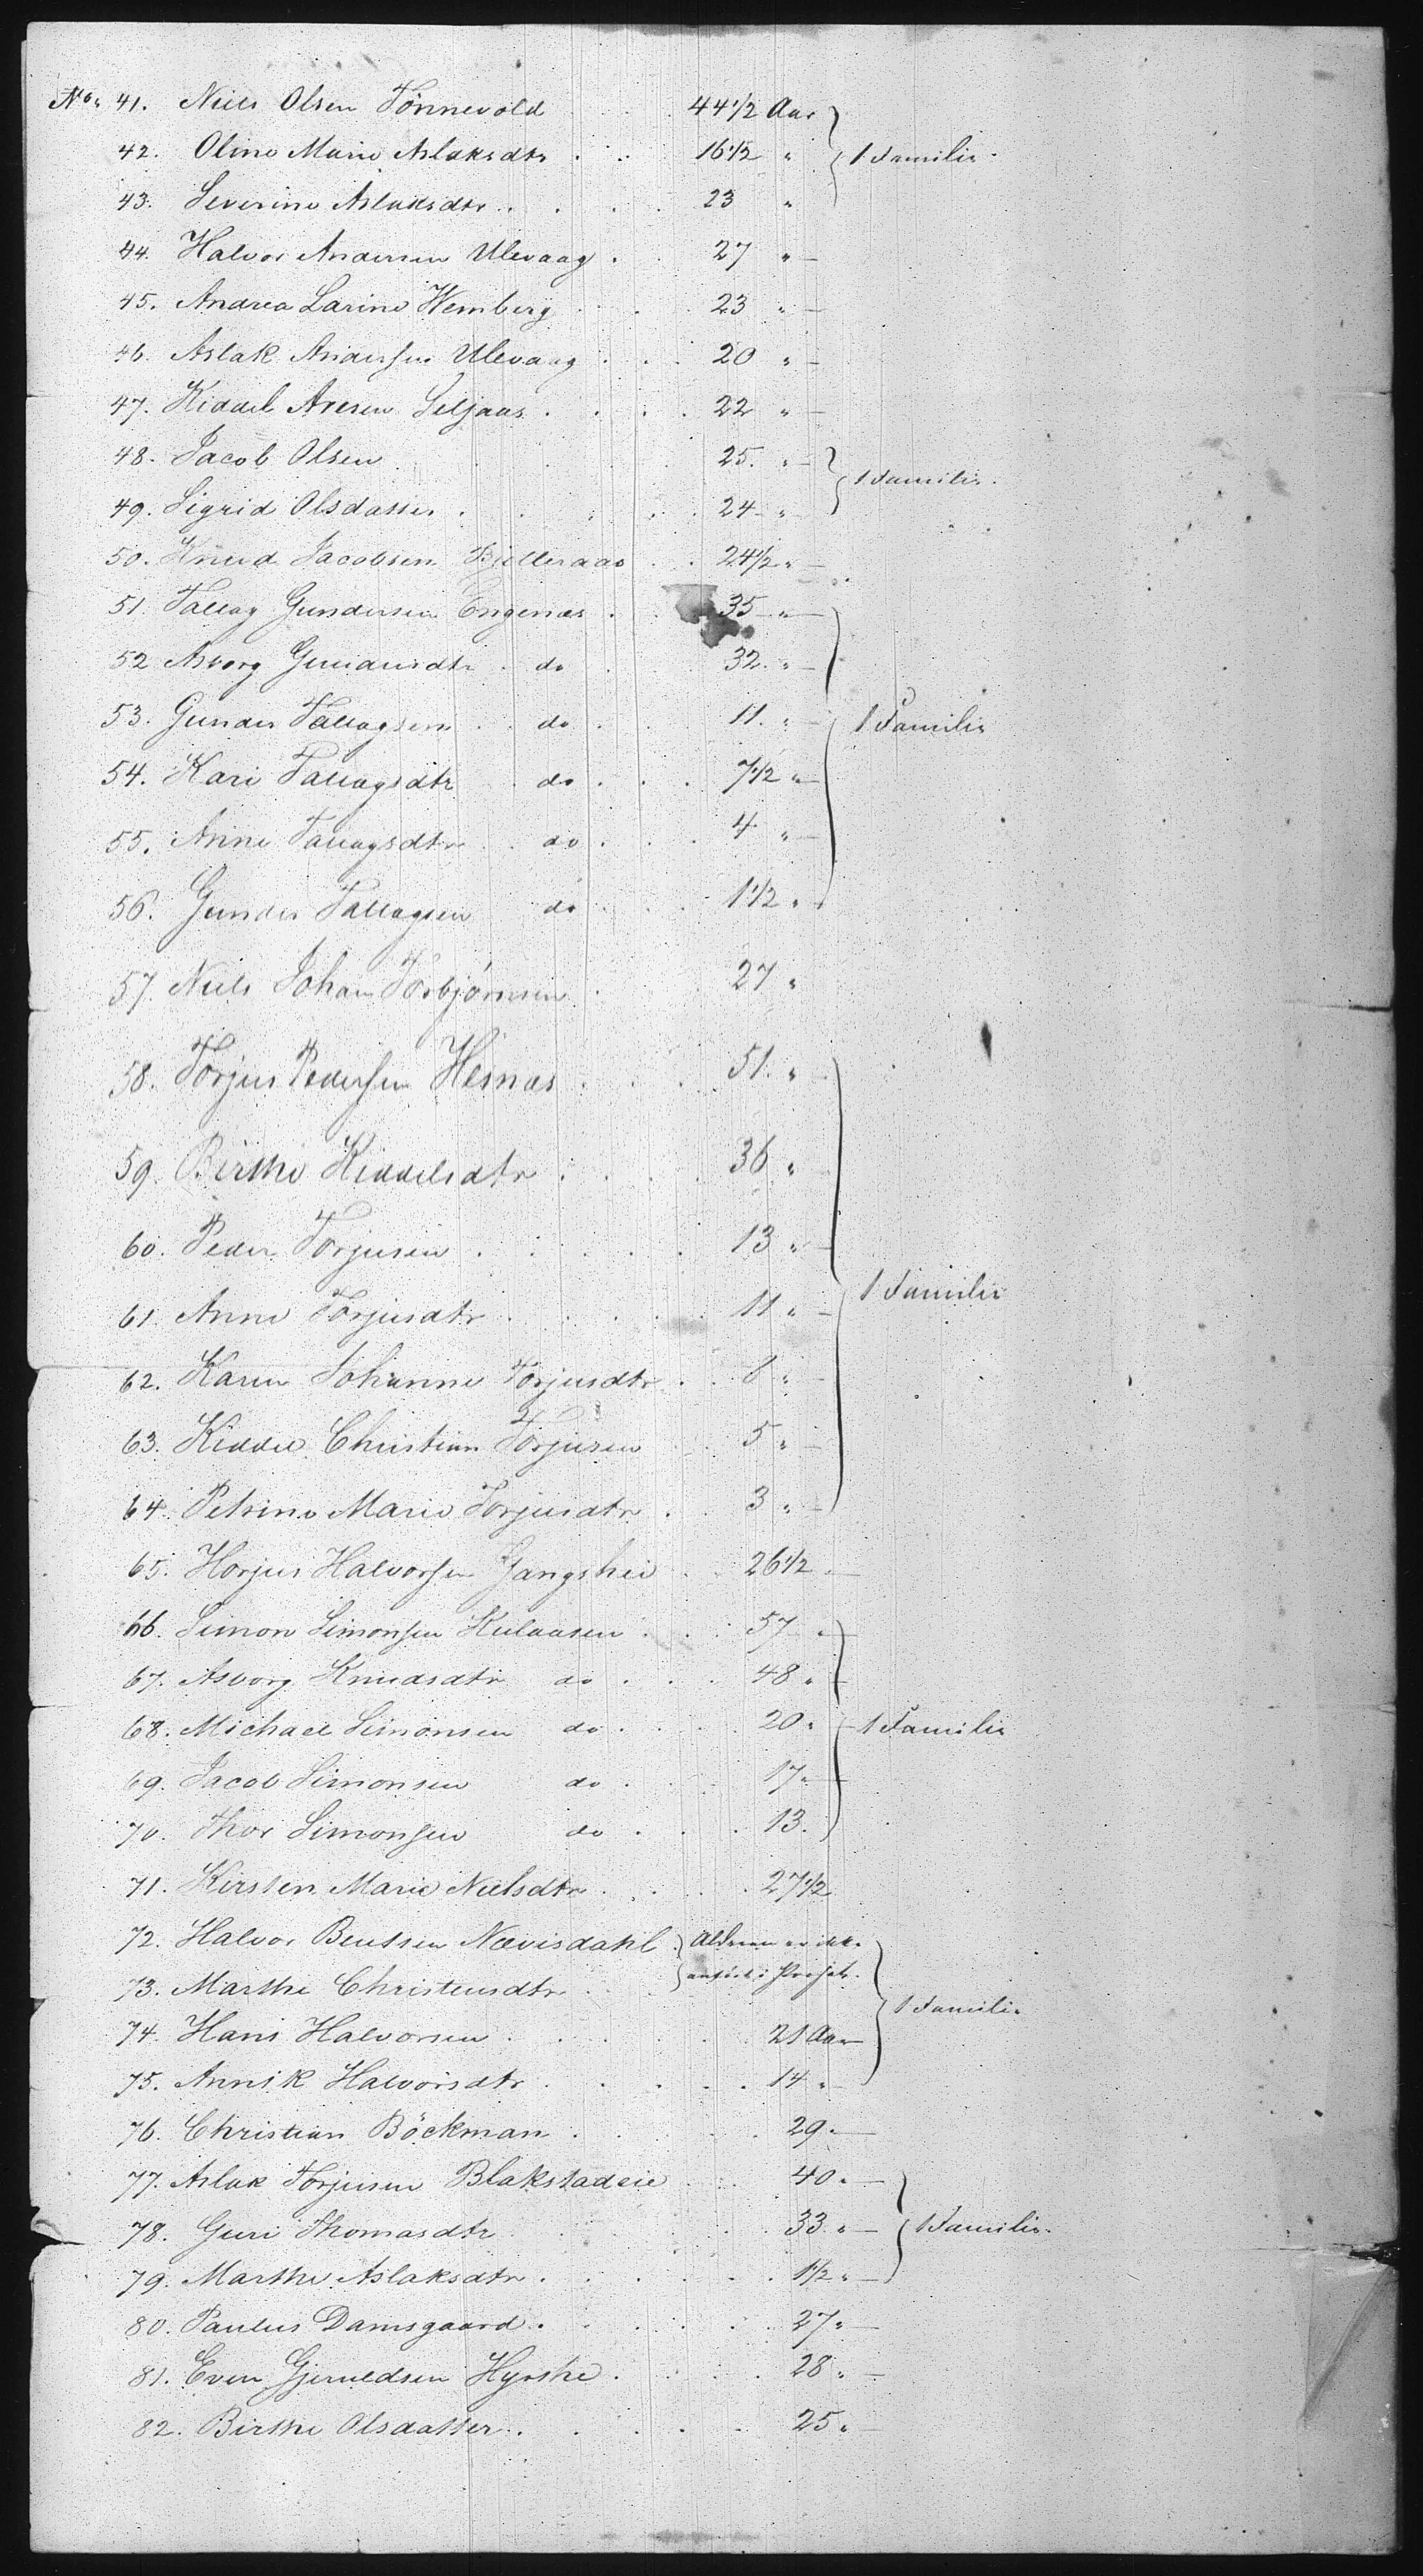 No. 41. Niels Olsen Tönnevold . . 44 1/2 Aar
42. Oline Marie Aslaksdtr . . 16 1/2 " } 1 Familie.
43. Severine Aslaksdtr . . . . 23 "
44. Halvor Andersen Ulevaag . . 27 " —
45. Andrea Larine Wemberg . . . 23 " —
46. Aslak Andersen Ulevaag . . . 20 " —
47. Kiddel Aresen Seljaas . . . . 22 " —
48. Jacob Olsen . . . . 25. " —
} 1 Familie.
49. Sigrid Olsdatter . . . . 24 " —
50. Knud Jacobsen Bjelleraas . . 24 1/2 " —
51. Tallag Gundersen Engenæs . . 35 " —
52 Asborg Gundersdtr . do . . 32. " —
53. Gunder Tallagsen . . do . . 11. " — } 1 Familie
54. Kari Tallagsdtr . do . . . 7 1/2 " —
55. Anne Tallagsdtr . . do . . . 4 " —
56. Gunder Tallagsen do . . . 1 1/2 "
57. Niels Johan Torbjörnsen . . 27 "
58. Torjus Pedersen Hesnæs . . . 51. "
59. Birthe Kiddelsdtr . . . . 36 "
60. Peder Torjusen . . . . . 13 " —
} 1 Familie
61. Anne Torjusdtr . . . . . 11 " —
62. Karen Johanne Torjusdtr . . 8 " —
63. Kiddel Christian Torjusen . . 5 " —
64. Petrine Marie Torjusdtr . . 3 " —
65. Horjus Halvorsen Gangshei . . 26 1/2 . —
66. Simon Simonsen Kulaasen . . . 57 " —
67. Asborg Knudsdtr do . . . 48 " —
68. Michael Simonsen do . . . 20 " — } 1 Familie
69. Jacob Simonsen do . . . 17 " —
70. Thor Simonsen do . . . 13.
71. Kirsten Marie Nielsdtr . . . . 27 1/2
72. Halvor Bentsen Nævisdahl . } Alderen er ikke
73. Marthe Christensdtr . . } anført i
} 1 Familie
74. Hans Halvorsen . . . . . 21 Aar
75. Annik Halvorsdtr . . . . . 14 " —
76. Christian Böckman . . . . 29 " —
77. Aslak Torjusen Blakstadeie . . . 40 " —
78. Guri Thomasdtr . . . . . 33 " — } 1 Familie.
79. Marthe Aslaksdtr . . . . . . 1 1/2 " —
80. Paulus Damsgaard . . . . . 27 " —
81. Even Gjeruldsen Hyrshe . . . . 28 " —
82. Birthe Olsdatter . . . . . 25 " —